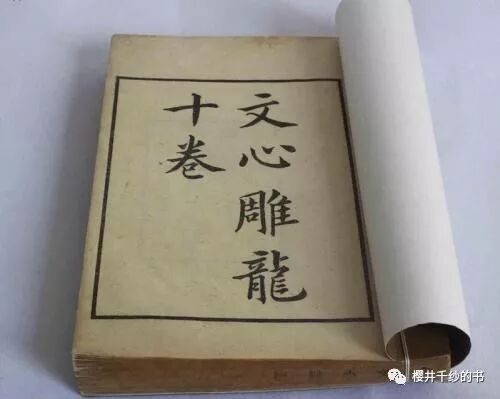 文心雕龍
十卷
樱井千纱的书